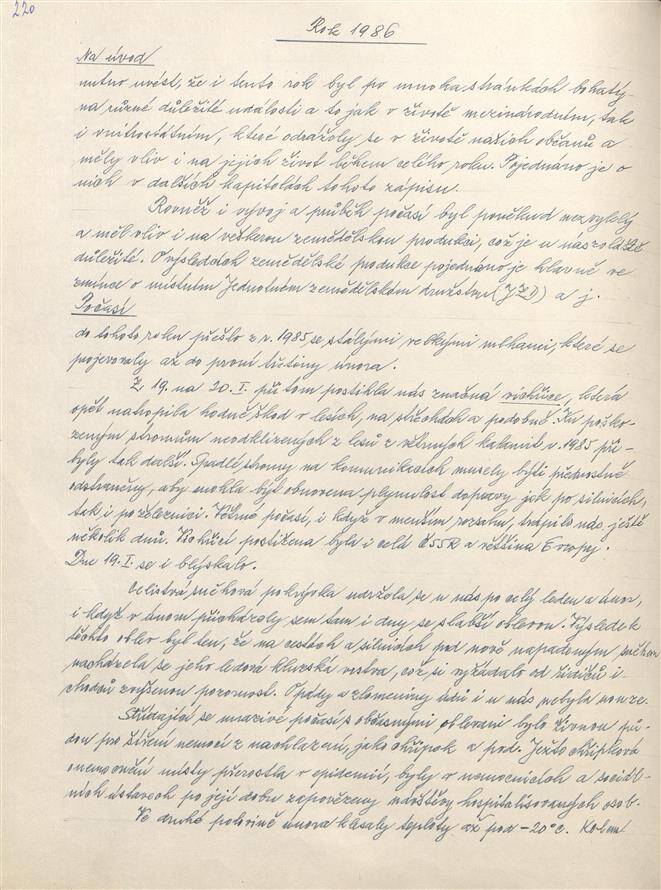 220
Rok 1986
Na úvod
nutno uvést, že i tento rok byl po mnoha stránkách bohatý
na různé důležité události a to jak v životě mezinárodním, tak
i vnitrostátním, které odrážely se v životě našich občanů a
měly vliv i na jejich život během celého roku. Pojednáno je o
nich v dalších kapitolách tohoto zápisu.
Rovněž i vývoj a průběh počasí byl poněkud nezvyklý
a měl vliv i na veškerou zemědělskou produkci, což je u nás zvláště
důležité. O výsledcích zemědělské produkce pojednáno je hlavně ve
zmínce o místním Jednotném zemědělském družstvu (JZD) a j.
Počasí
do tohoto roku přešlo z r. 1985 se stálými velkými mlhami, které se
projevovaly až do první třetiny února.
Z 19. na 20. I. při tom postihla nás značná vichřice, která
opět natropila hodně škod v lesích, na střechách a podobně. Ku poško-
zeným stromům neodklizených z lesů z větrných kalamit v. 1985 při-
byly tak další. Spadlé stromy na komunikacích musely býti přednostně
odstraněny, aby mohla být obnovena plynulost dopravy jak po silnicích,
tak i po železnici. Větrné počasí, i když v menším rozsahu, trápilo nás ještě
několik dnů. Vichřicí postižena byla i celá ČSSR a většina Evropy.
Dne 19. I. se i blýskalo.
Celistvá sněhová pokrývka udržela se u nás po celý leden a únor,
i když v únoru přicházely sem tam i dny se slabší oblevou. Výsledek
těchto oblev byl ten, že na cestách a silnicích pod nově napadaným sněhem
nacházela se jeho ledová kluzská vrstva, což si vyžádalo od řidičů i
chodců zvýšenou pozornost. O pády a zlomeniny údů i u nás nebyla nouze.
Střídající se mrazivé počasí s občasnými oblevami bylo živnou pů-
dou pro šíření nemocí z nachlazení, jako chřipek a pod. Ježto chřipková
onemocnění místy přerostla v epidemii, byly v nemocnicích a sociál-
ních ústavech po její dobu zapovězeny návštěvy hospitalisovaných osob.
Ve druhé polovině února klesaly teploty až pod -20°C. Kolem